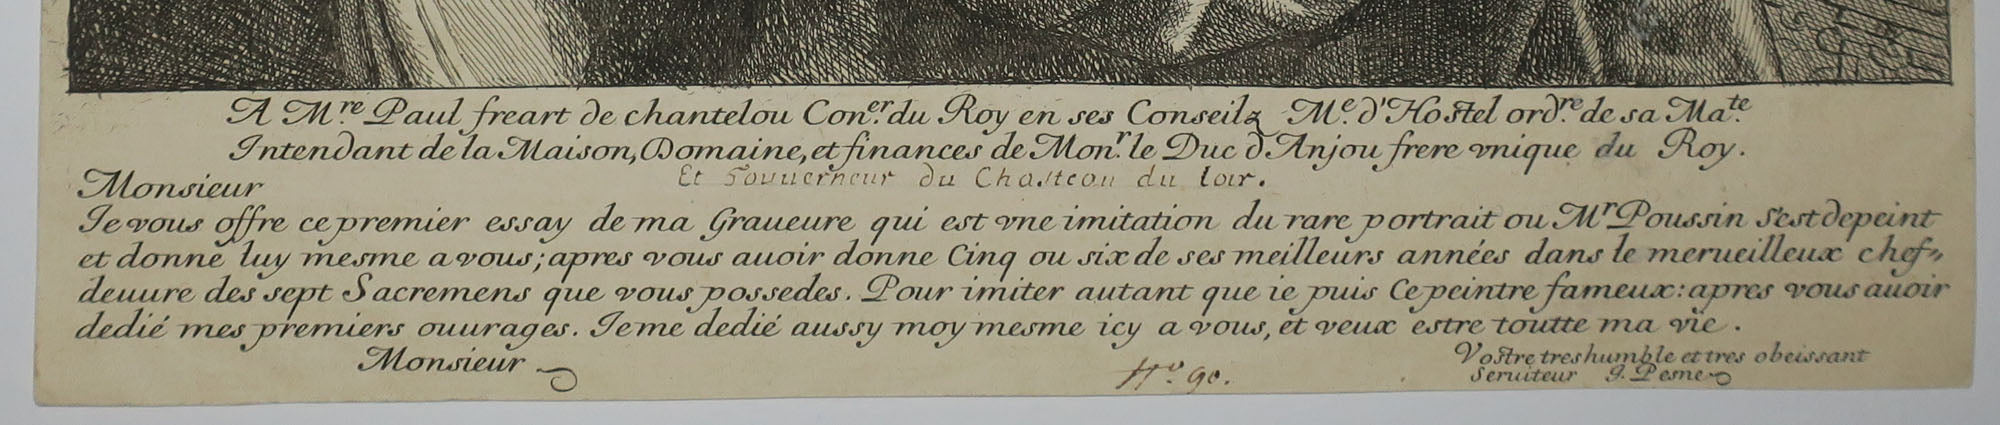 A Mre Paul freart de chantelou Coner. du Roy en ses Conseilz Me. d'Hostel ordre de sa Mate.
Intendant de la Maison, Domaine, et finances de Monr. le Duc d'Anjou frere vnique du Roy.
Et Gouuerneur du Chasteau du loir.
Monsieur
Je vous offre ce premier essay de ma Graueure qui est vne imitation du rare portrait ou Mr Poussin s'est depeint
et donne luy mesme a vous; apres vous auoir donne Cinq ou six de ses meilleurs années dans le merueilleux chef=
deuure des sept Sacremens que vous possedes. Pour imiter autant que ie puis Ce peintre fameux: apres vous auoir
dedié mes premiers ouurages. Je me dedié aussy moy mesme icy a vous, et veux estre toutte ma vie.
Monsieur
Vostre tres humble et tres obeissant
Seruiteur J. Pesne
No. 90.